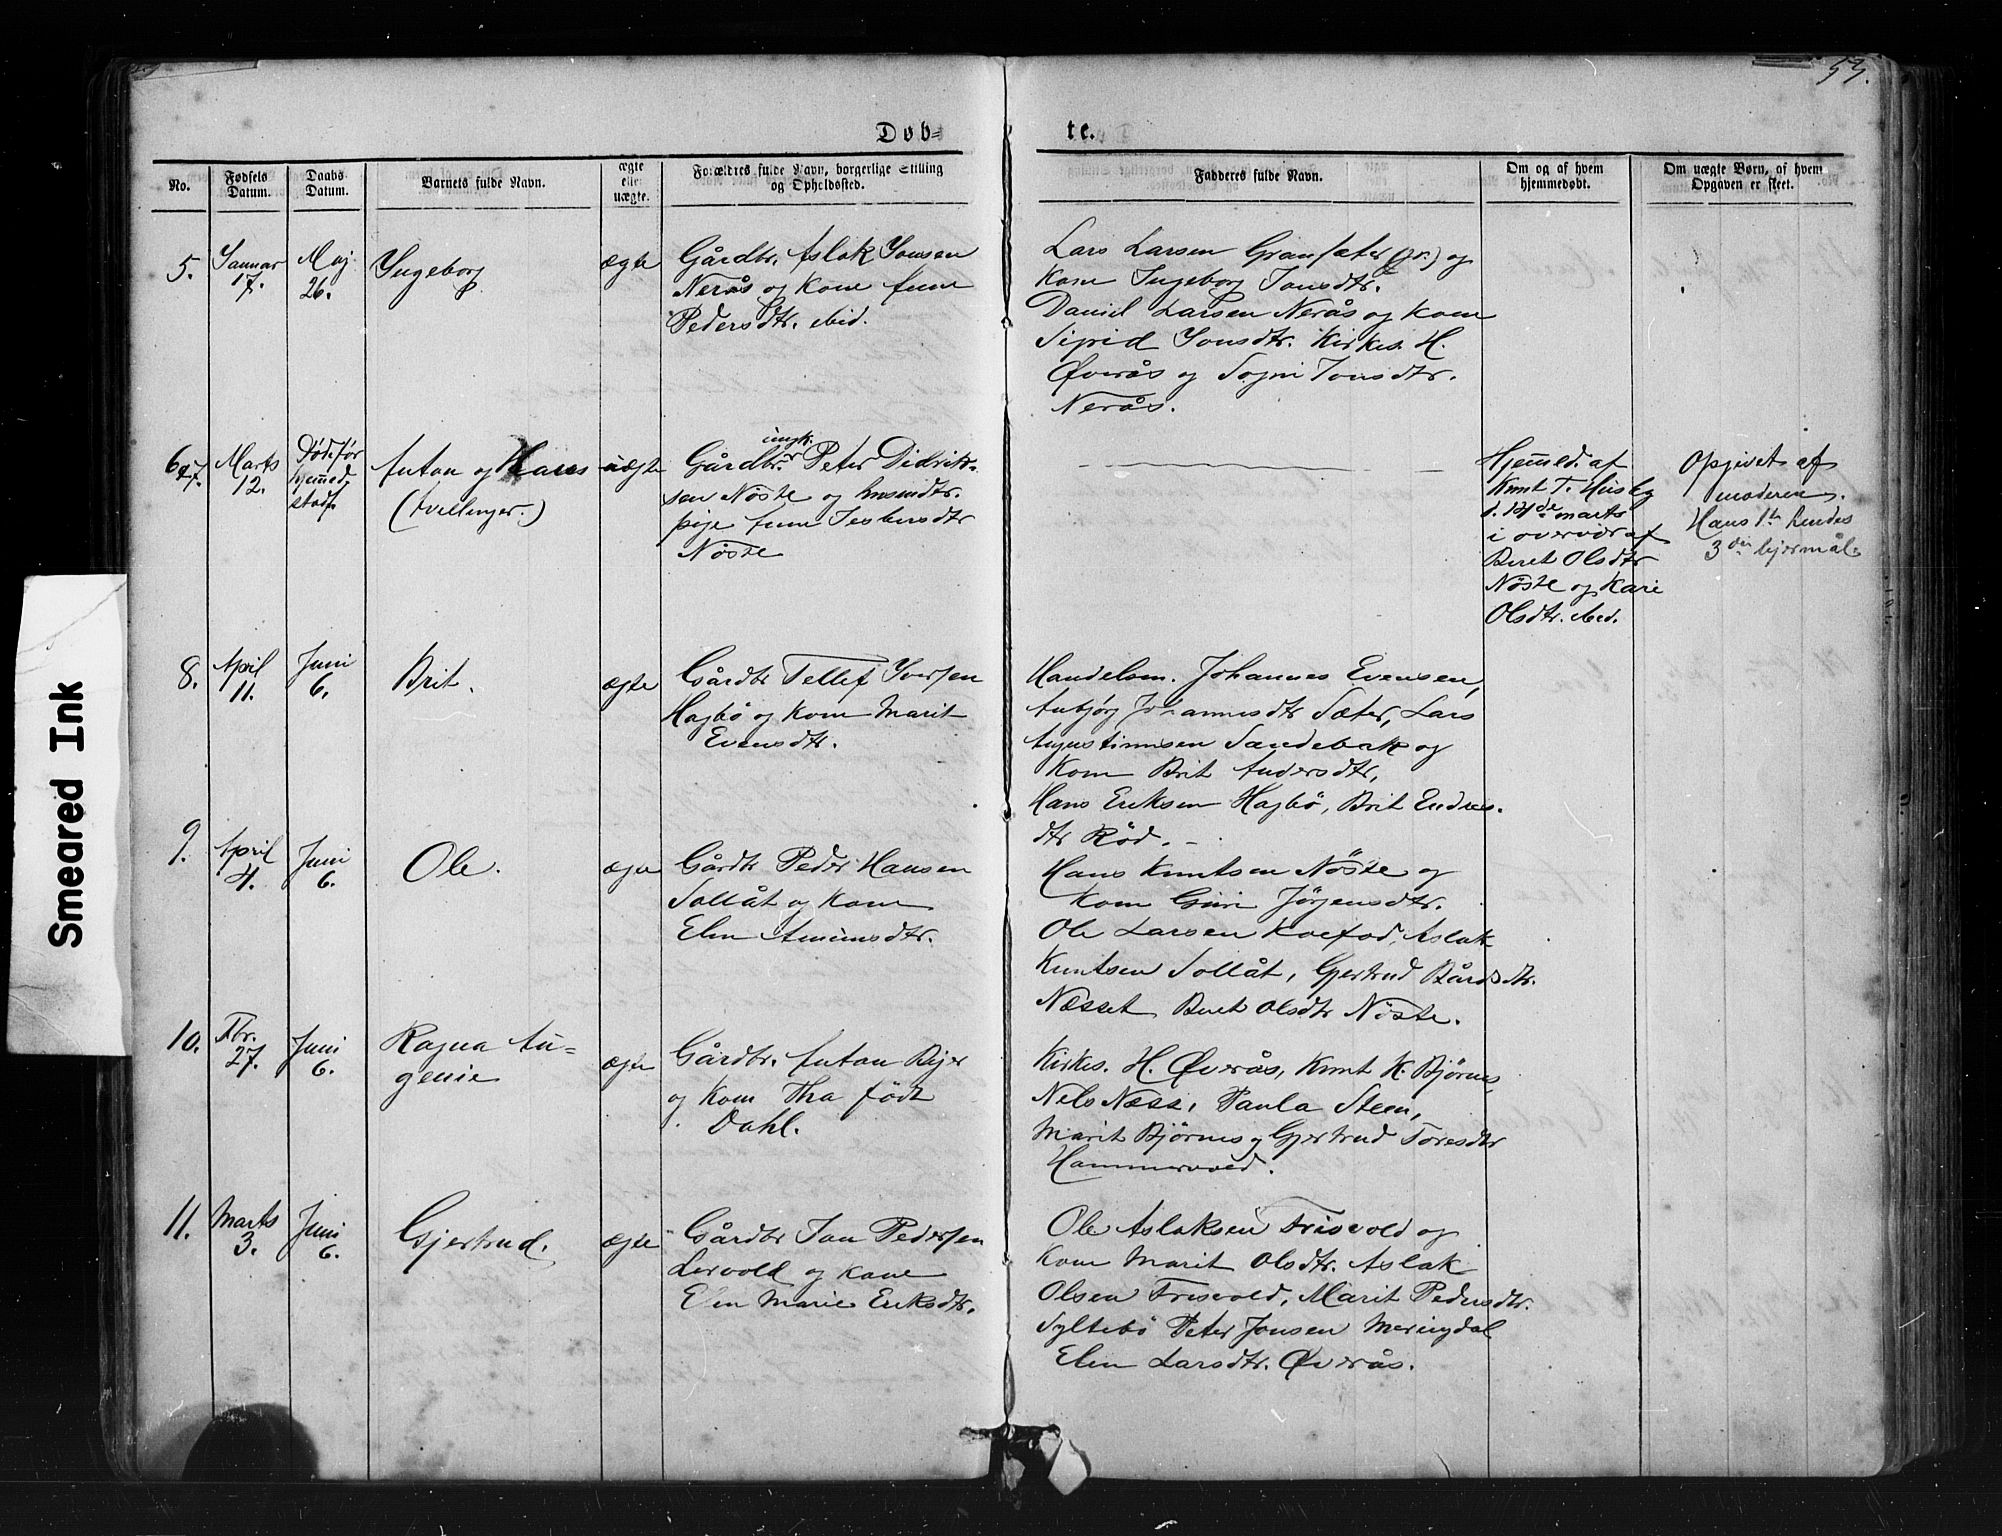 53.
Døb-
te.
No.
Fødsels Datum.
Daabs Datum.
Barnets fulde Navn.
ægte eller uægte.
Forældres fulde Navn, borgerlige Stilling
og Opholdssted.
Fadderes fulde Navn.
Om og af hvem
hjemmedøbt.
Om uægte Børn, af hvem
Opgaven er skeet.
5.
Januar
17.
Maj
26.
Ingeborg
ægte
Gårdbr. Aslak Jonsen
Nerås og Kone
Pedersdtr. ibid.
Lars Larsen Gransæter (gr.) og
Kone Ingeborg Jonsdtr.
Daniel Larsen Nerås og Kone
Sigrid Jonsdtr. Kirkes. H.
Øverås og Jonsdtr.
Nerås.
6 og 7.
Marts
12.
Døde før
hjemmed.
stadf.
Anton og Hans
(Tvillinger.)
uægte
ungk.
Gårdbr. Peter Didrik-
sen Nøste og
pige
Nøste
Hjemmed. af
Knut T. Husby
d. 12de marts
i overvær af
Beret Olsdtr
Nøste og Kari
Olsdtr. ibid.
Opgivet af
moderen.
Hans 1te hendes
3die lejermål.
8.
April
11.
Juni
6.
Brit.
ægte
Gårdbr Tellef Iversen
Hagbø og Kone Marit
Evensdtr.
Handelsm. Johannes Evensen,
Anbjørg Johannesdtr Sæter, Lars
Augustinusen Sandebak og
Kone Brit Andersdtr,
Hans Eriksen Hagbø, Brit Endres-
dtr Rød. -
9.
April
4.
Juni
6.
Ole.
ægte
Gårdbr Peder Hansen
Sollåt og Kone
Elen
Hans Knutsen Nøste og
Kone Guri Jørgensdtr.
Ole Larsen Koefod, Aslak
Knutsen Sollåt, Gjertrud Bårdsdtr.
Næsset Beret Olsdtr Nøste.
10.
Fbr.
27.
Juni
6.
Ragna Au-
genie
ægte
Gårdbr. Anton Bejer
og Kone Thea født
Dahl.
Kirkes. H. Øverås, Knut K. Bjørnes,
Nels Næss, Paula Steen,
Marit Bjørnes og Gjertrud Toresdtr
Hammervold.
11.
Marts
3.
Juni
6.
Gjertrud.
ægte
Gårdbr Jon Pedersen
Lervold og Kone
Elen Marie Eriksdtr.
Ole Aslaksen Frisvold og
Kone Marit Olsdtr. Aslak
Olsen Frisvold, Marit Pedersdtr.
Syltebø Peter Jonsen Meringdal
Elen Larsdtr. Øverås.
Smeared Ink